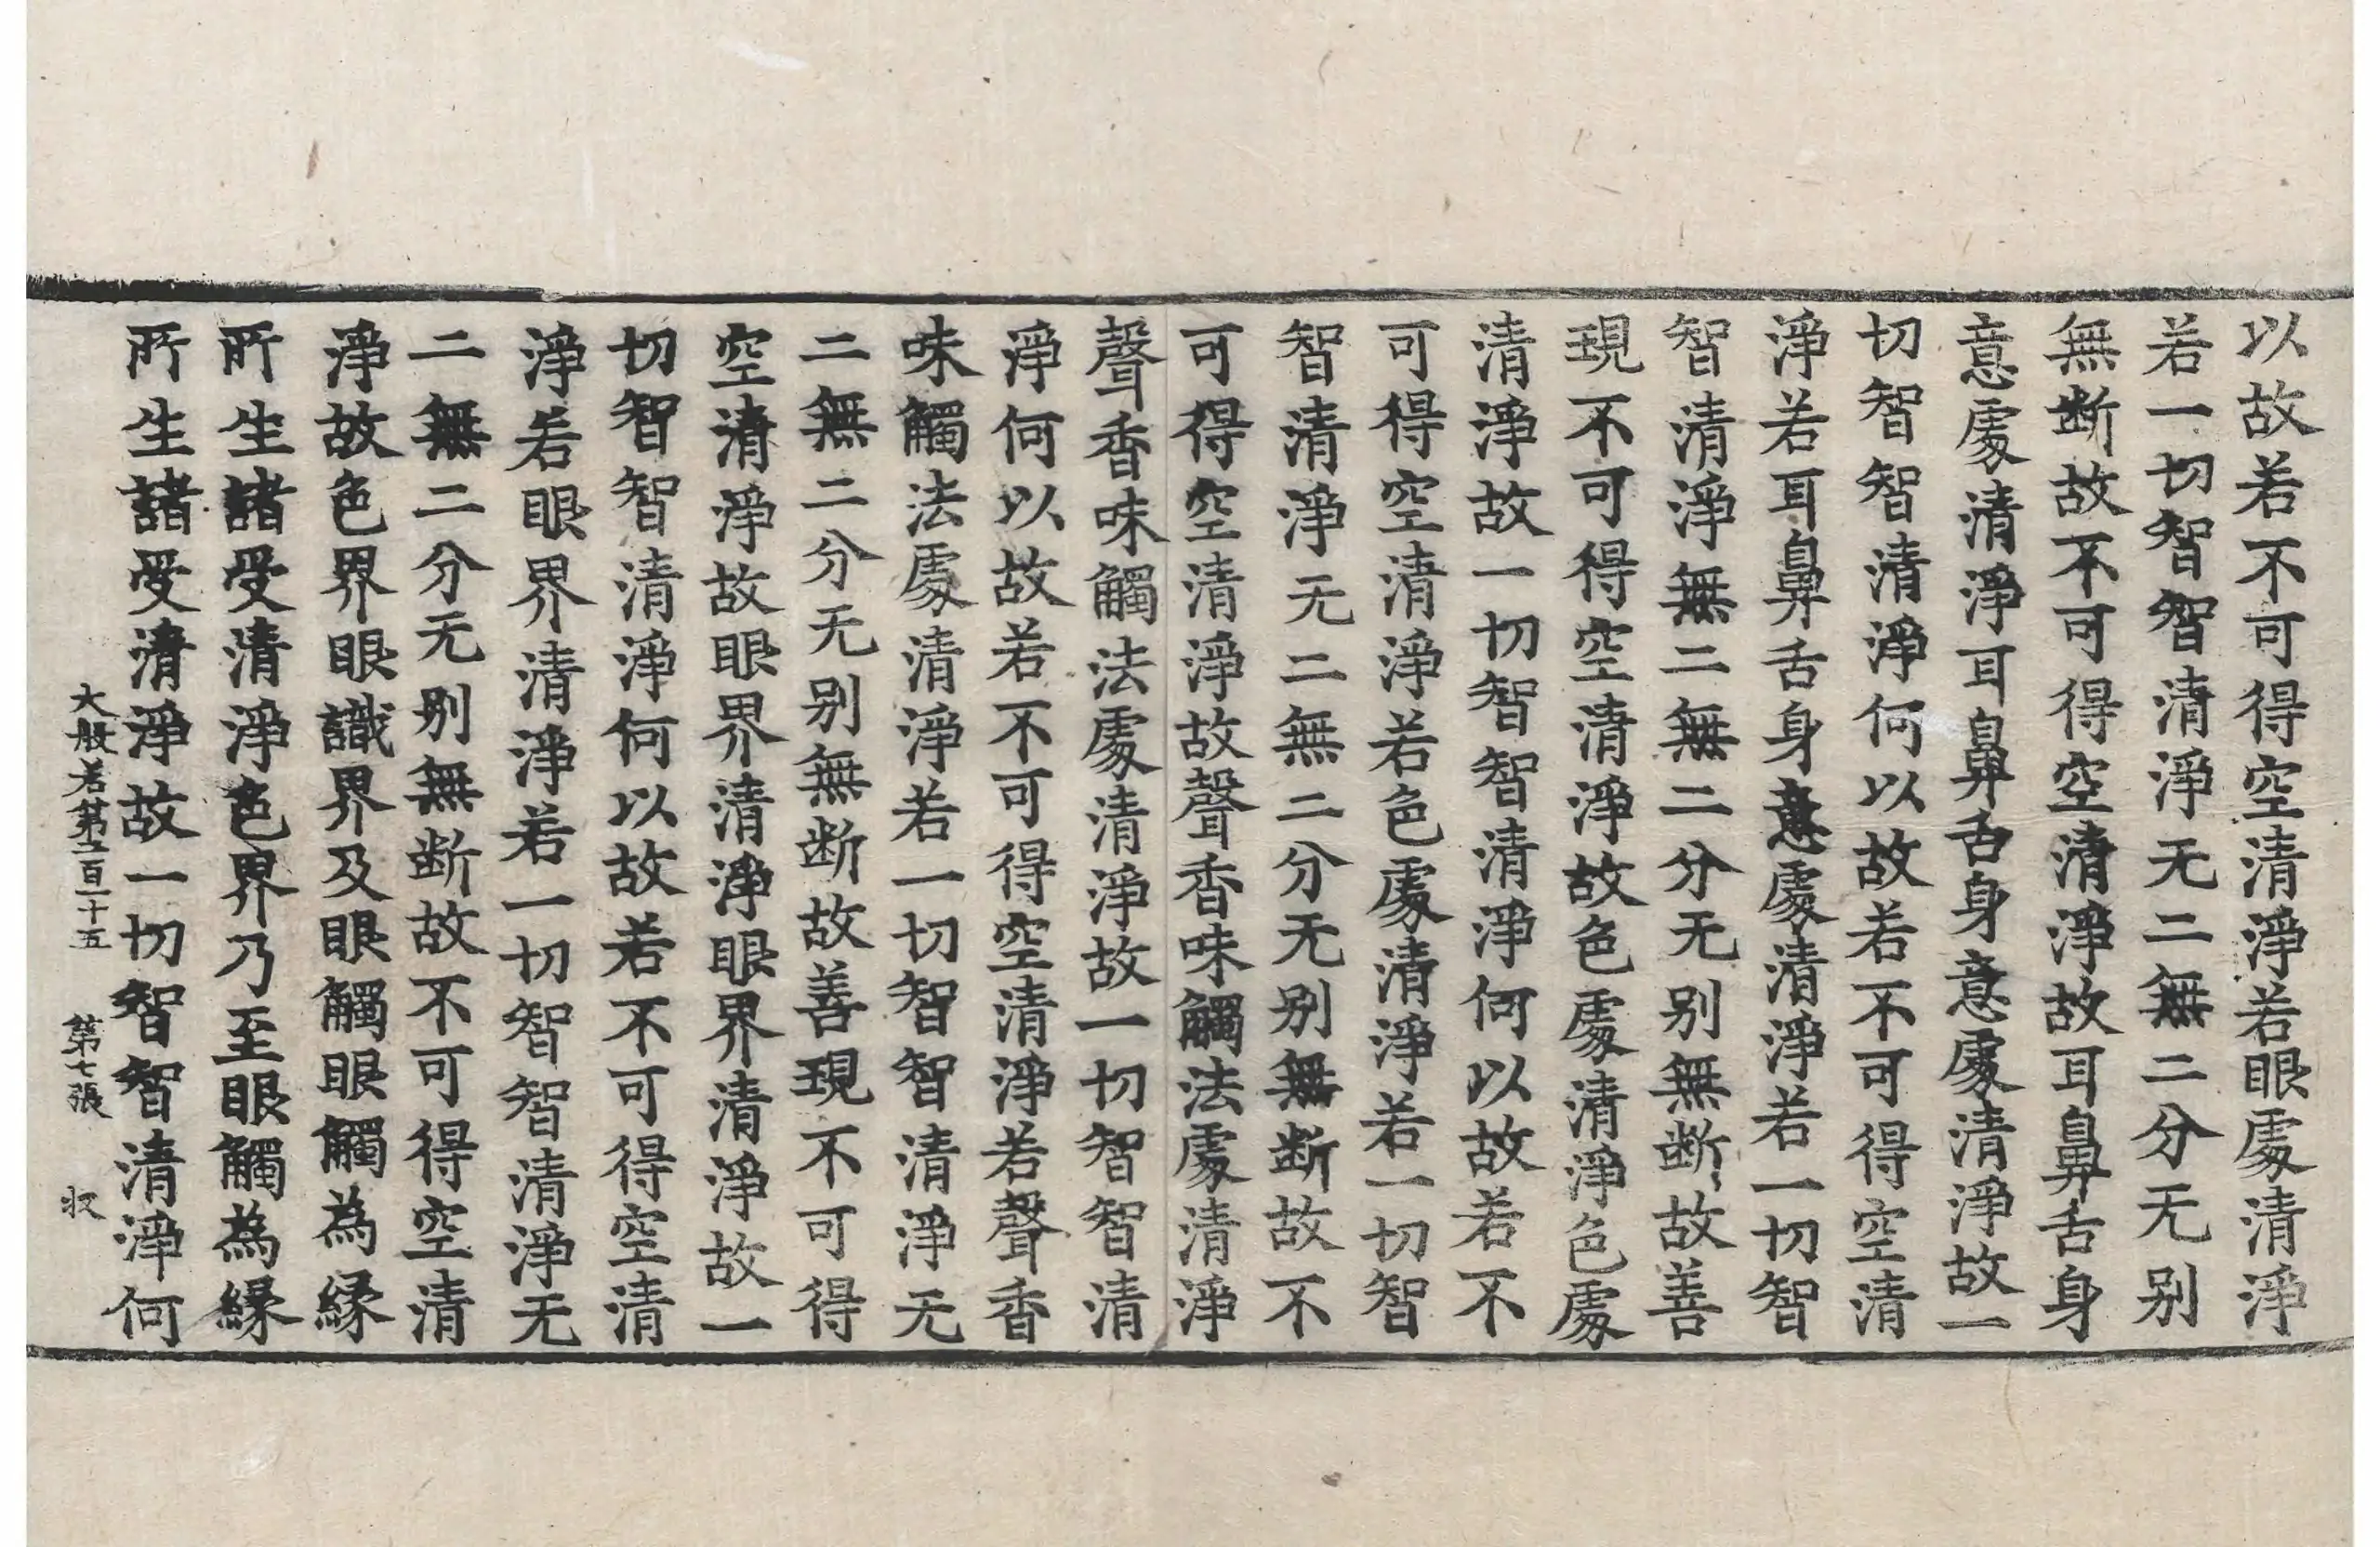 以故若不可得空清淨若眼處清淨
若一切智智清淨无二無二分无别
無断故不可得空清淨故耳鼻舌身
意處清淨耳鼻舌身意處清淨故一
切智智清淨何以故若不可得空清
淨若耳鼻舌身意處清淨若一切智
智清淨無二無二分无别無断故善
現不可得空清淨故色處清淨色處
清淨故一切智智清淨何以故若不
可得空清淨若色處清淨若一切智
智清淨无二無二分无别無断故不
可得空清淨故聲香味觸法處清淨
聲香味觸法處清淨故一切智智清
淨何以故若不可得空清淨若聲香
味觸法處清淨若一切智智清淨无
二無二分无别無断故善現不可得
空清淨故眼界清淨眼界清淨故一
切智智清淨何以故若不可得空清
淨若眼界清淨若一切智智清淨无
二無二分无别無断故不可得空清
淨故色界眼識界及眼觸眼觸為緣
所生諸受清淨色界乃至眼觸為緣
所生諸受清淨故一切智智清淨何
大般若第二百一十五 第七張 收